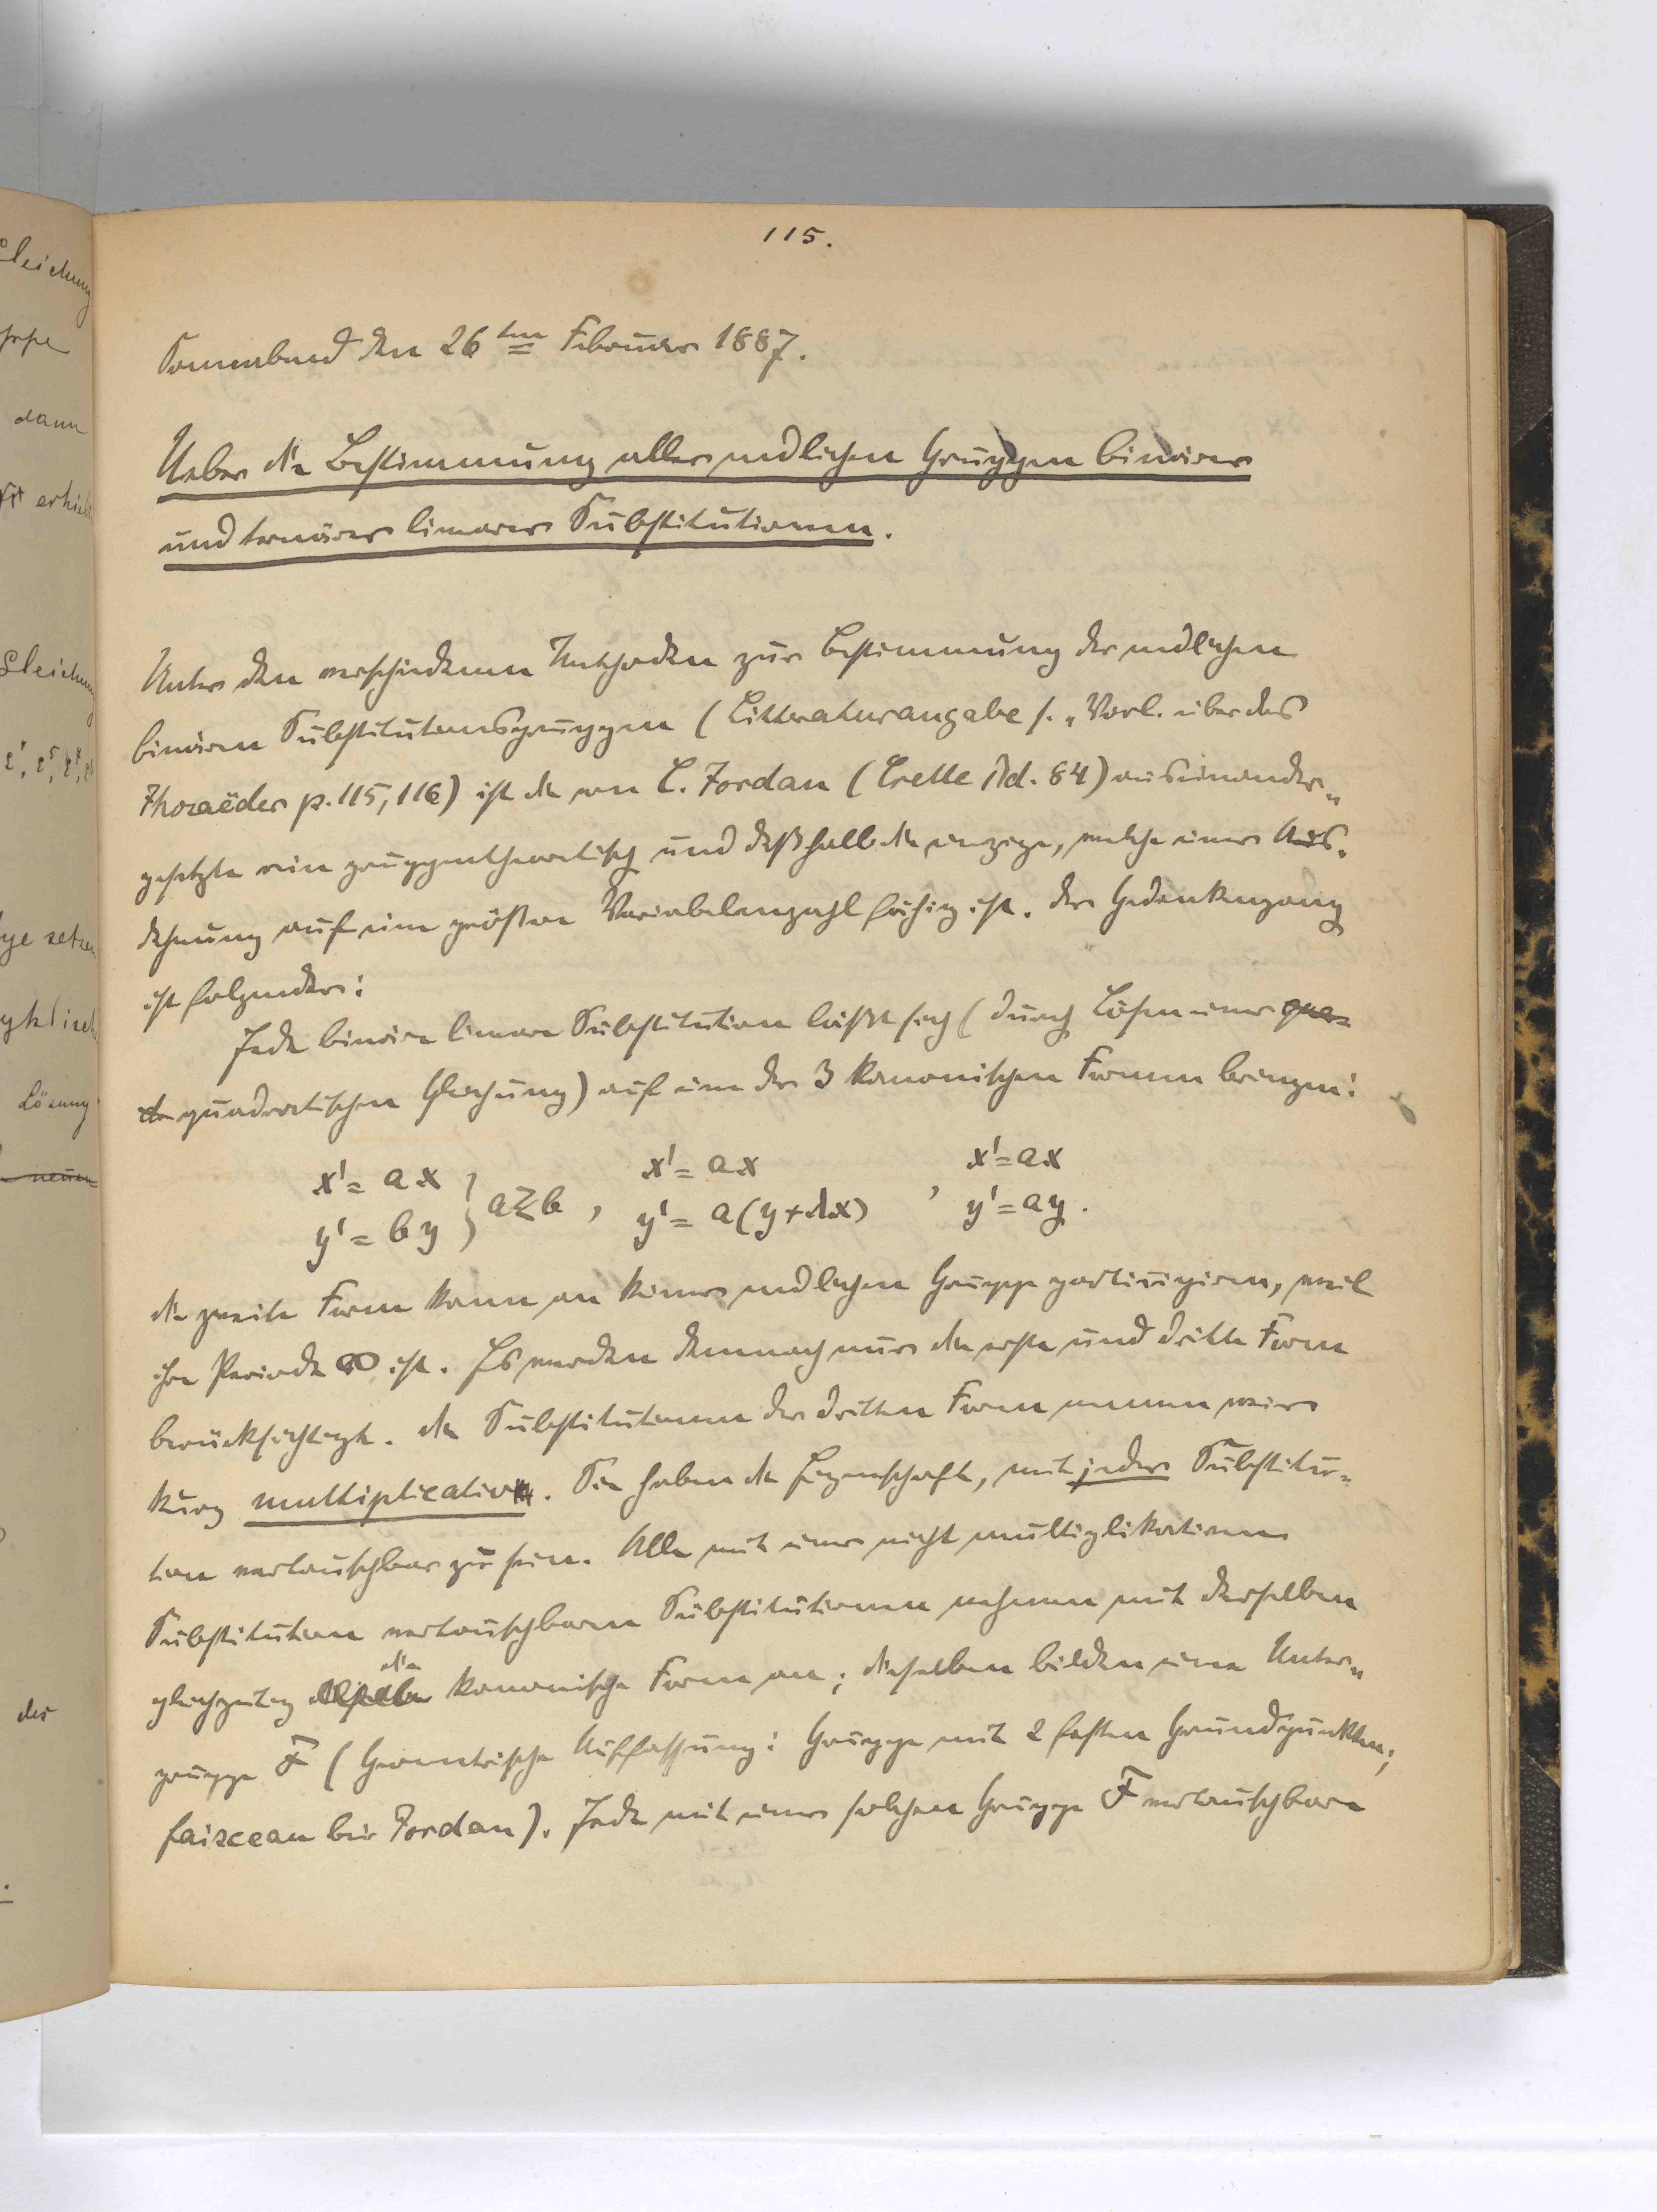 115.
Sonnabend den 26ten Februar 1887.
Ueber die Bestimmung aller endlichen Gruppen binärer
und ternärer linearer Substitutionen.
Unter den verschiedenen Methoden zur Bestimmung der endlichen
binären Substitutionsgruppen (Litteraturangabe s. „Vorl. über das
Ikosaëder p. 115, 116) ist die von C. Jordan (Crelle Bd. 84) auseinander-
gesetzte rein gruppentheoretisch und deßhalb die einzige, welche einer Aus-
dehnung auf eine größere Variabelenzahl fähig ist. Der Gedankengang
ist folgender:
Jede binäre lineare Substitution läßt sich (durch Lösen einer qua-
dr quadratischen Gleichung) auf eine der 3 kanonischen Formen bringen:
x' = ax } a≷b , x' = ax , x' = ax
y' = by y' = a(y+λx) y' = ay.
Die zweite Form kann an keiner endlichen Gruppe partizipiren, weil
ihre Periode ∞ ist. Es werden demnach nur die erste und dritte Form
berücksichtigt. Die Substitutionen der dritten Form nennen wir
kurz multiplicativ. Sie haben die Eigenschaft, mit jeder Substitu-
tion vertauschbar zu sein. Alle mit einer nicht multiplikativen
Substitution vertauschbaren Substitutionen nehmen mit derselben
gleichzeitig die kanonische Form an; dieselben bilden eine Unter-
gruppe F (Geometrische Auffassung: Gruppe mit 2 festen Grundpunkten;
faisceau bei Jordan). Jede mit einer solchen Gruppe F vertauschbare
Gleichung
dann
erhielt
Gleichung
setzen
Lösung
neuen
der